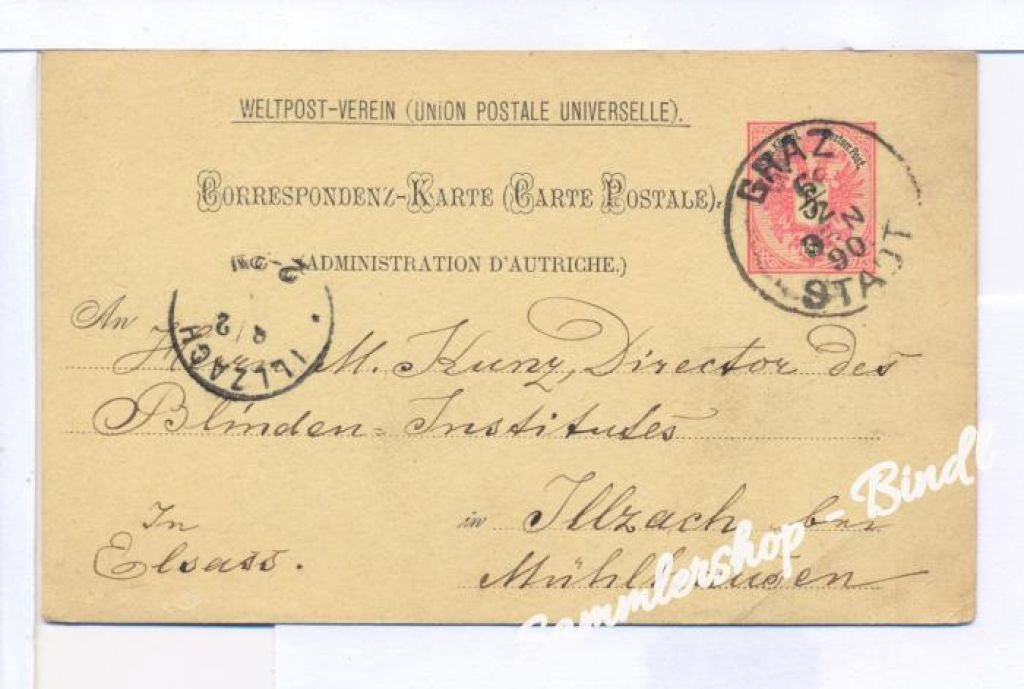 WELTPOST-VEREIN (UNION POSTALE UNIVERSELLE).
CORRESPONDENZ-KARTE (CARTE POSTALE).
(ADMINISTRATION D'AUTRICHE.)
GRAZ
90
STADT
ILLZACH
An
Herrn M. Kunz, Director des
Blinden-Institutes
in Illzach bei
Mühlhausen
In
Elsass.
Sammlershop-Bindl